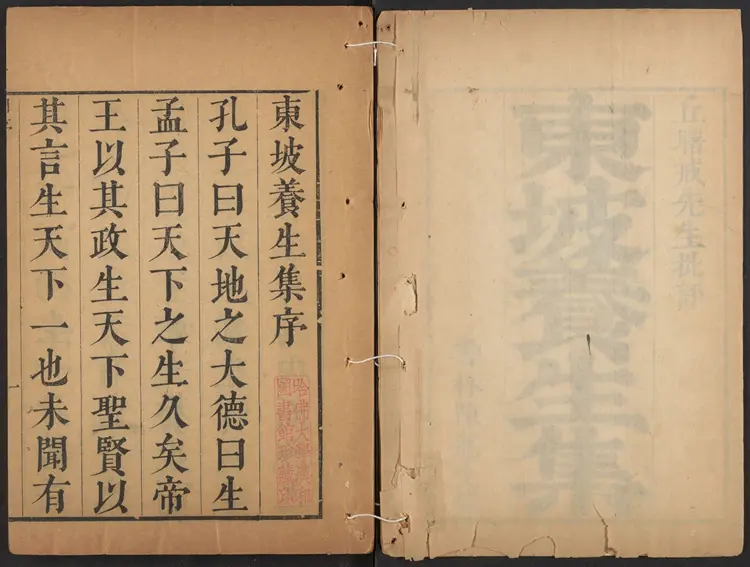 丘曙戒先生批評
東坡養生集
東坡養生集序
孔子曰天地之大德曰生
孟子曰天下之生久矣帝
王以其政生天下聖賢以
其言生天下一也未聞有
哈佛大學漢和
圖書館珍藏印